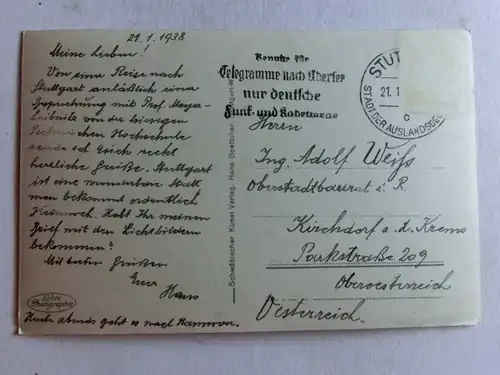 21.1.1938
Meine Lieben!
Von einer Reise nach
Stuttgart anläßlich einer
Besprechung mit Prof. Meyer-
Leibnitz von der hiesigen
Technischen Hochschule
sende ich Euch recht
herzliche Grüße. Stuttgart
ist eine wunderbare Stadt
man bekommt ordentlich
Heimweh. Habt Ihr meinen
Brief mit den Lichtbildern
bekommen?
Mit vielen Grüßen
Euer
Hans
Heute abends geht es nach Hannover.
Echte
Photographie
Schwäbischer Kunst Verlag, Hans Boettcher, Stuttgart
Benutze für
Telegramme nach Übersee
nur deutsche
Funk- und Kabelwege
STUT
21.1
STADT DER AUSLANDSDEU
c
Herrn
Ing. Adolf Weiss
Oberstadtbaurat i. R.
Kirchdorf a. d. Krems
Parkstraße 209
Oberoesterreich
Oesterreich.